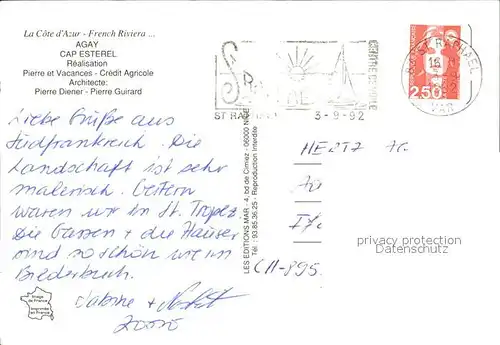 La Côte d'Azur - French Riviera ...
AGAY
CAP ESTEREL
Réalisation
Pierre et Vacances - Crédit Agricole
Architecte:
Pierre Diener - Pierre Guirard
Liebe Grüße aus
Südfrankreich. Die
Landschaft ist sehr
malerisch. Gestern
waren wir in St. Tropez.
Die Gassen + die Häuser
sind so schön wie im
Bilderbuch.
Sabine +
Image
de France
Imprimé
en France
LES EDITIONS MAR - 4, bd de Cimiez - 06000 NICE
Tél. : 93.85.36.25 - Reproduction Interdite
ST RAPHAEL
3-9-92
ST RAPHAEL
VAR
2,50
HERTZ AG
CH-895
privacy protection
Datenschutz